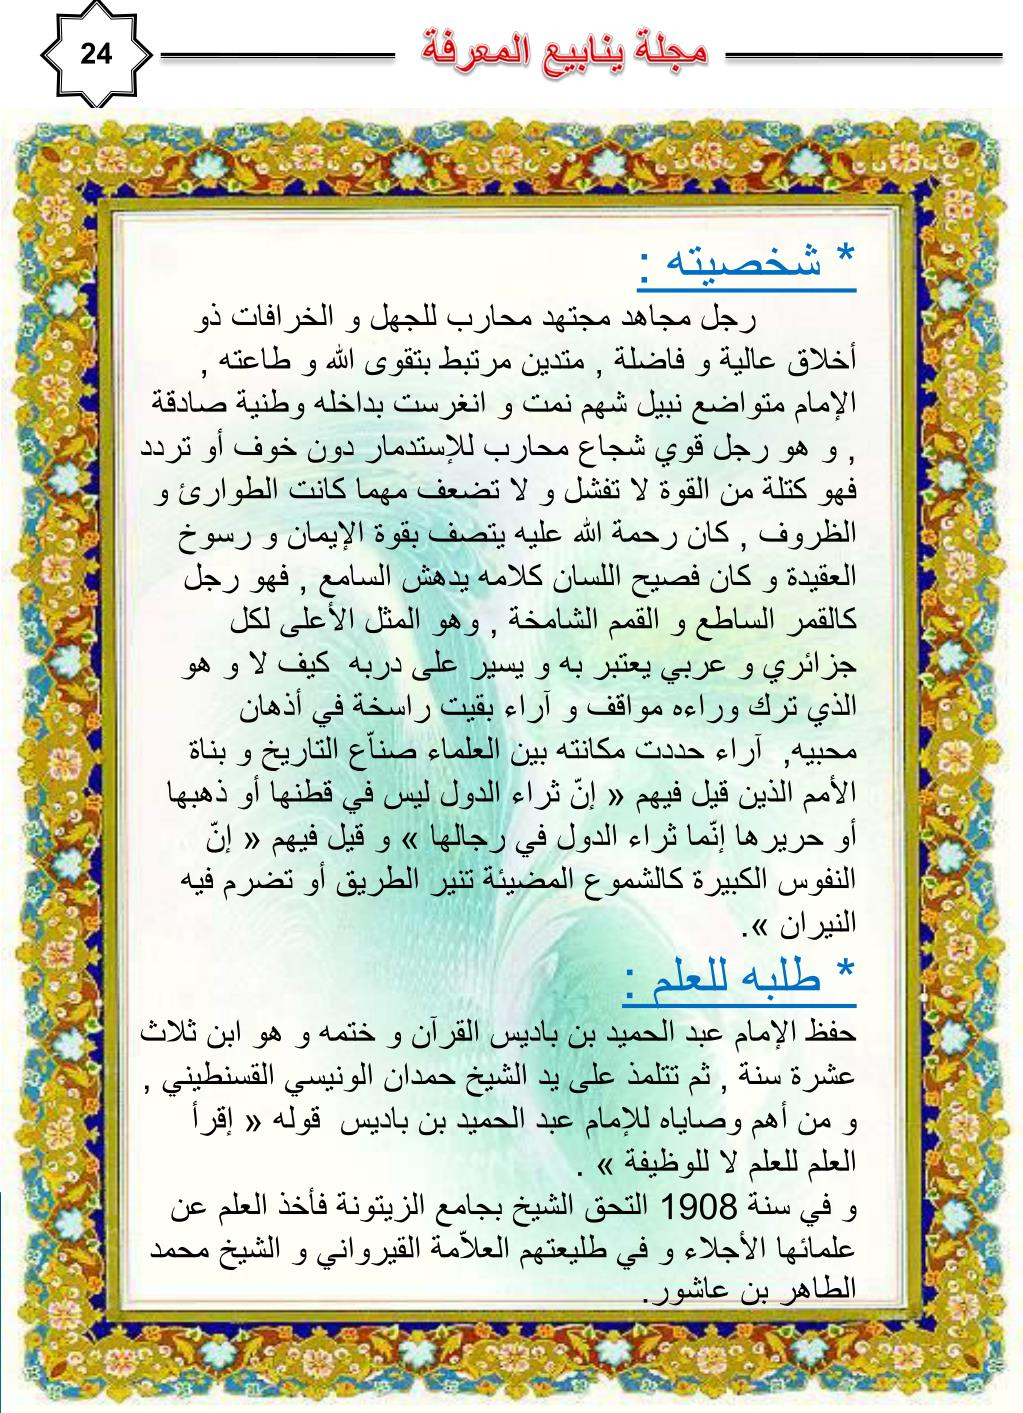 24
مجلة ينابيع المعرفة
* شخصيته :
رجل مجاهد مجتهد محارب للجهل و الخرافات ذو
أخلاق عالية و فاضلة , متدين مرتبط بتقوى الله و طاعته ,
الإمام متواضع نبيل شهم نمت و انغرست بداخله وطنية صادقة
, و هو رجل قوي شجاع محارب للإستدمار دون خوف أو تردد
فهو كتلة من القوة لا تفشل و لا تضعف مهما كانت الطوارئ و
الظروف , كان رحمة الله عليه يتصف بقوة الإيمان و رسوخ
العقيدة و كان فصيح اللسان كلامه يدهش السامع , فهو رجل
كالقمر الساطع و القمم الشامخة , وهو المثل الأعلى لكل
جزائري و عربي يعتبر به و يسير على دربه كيف لا و هو
الذي ترك وراءه مواقف و آراء بقيت راسخة في أذهان
محبيه, آراء حددت مكانته بين العلماء صنّاع التاريخ و بناة
الأمم الذين قيل فيهم « إنّ ثراء الدول ليس في قطنها أو ذهبها
أو حريرها إنّما ثراء الدول في رجالها » و قيل فيهم « إنّ
النفوس الكبيرة كالشموع المضيئة تنير الطريق أو تضرم فيه
النيران ».
* طلبه للعلم :
حفظ الإمام عبد الحميد بن باديس القرآن و ختمه و هو ابن ثلاث
عشرة سنة , ثم تتلمذ على يد الشيخ حمدان الونيسي القسنطيني ,
و من أهم وصاياه للإمام عبد الحميد بن باديس قوله « إقرأ
العلم للعلم لا للوظيفة » .
و في سنة 1908 التحق الشيخ بجامع الزيتونة فأخذ العلم عن
علمائها الأجلاء و في طليعتهم العلاّمة القيرواني و الشيخ محمد
الطاهر بن عاشور.